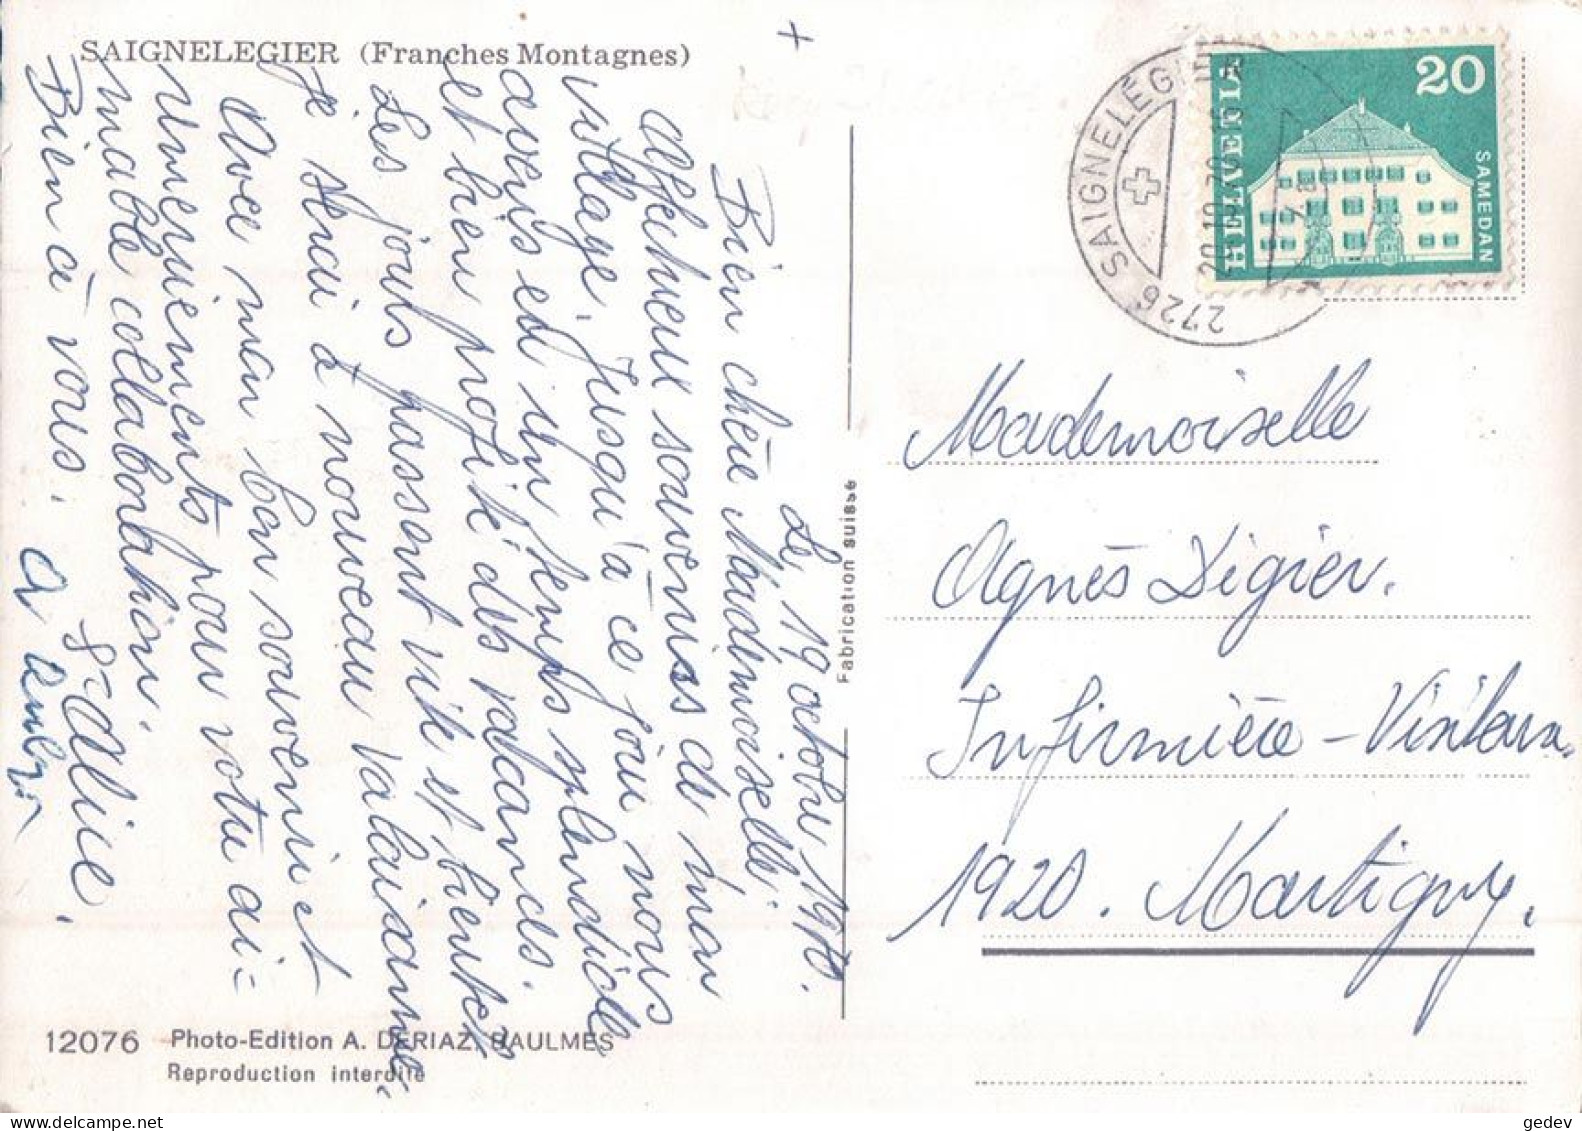 SAIGNELEGIER (Franches Montagnes)
+
Le 19 octobre 1970.
Bien chère Mademoiselle,
Affectueux souvenirs de mon
village. Jusqu'à ce jour nous
avons eu un temps splendide
et bien profité des vacances.
Les jours passent vite et bientôt
je serai à nouveau valaisanne.
Avec mon bon souvenir et
remerciements pour votre ai=
mable collaboration.
Bien à vous.
Sr Alice.
2726 SAIGNELÉGIER
20.10.70
HELVETIA
20
SAMEDAN
Fabrication suisse
Mademoiselle
Agnès Digier.
Infirmière - Visiteuse
1920. Martigny.
12076 Photo-Edition A. DERIAZ, BAULMES
Reproduction interdite
gedev